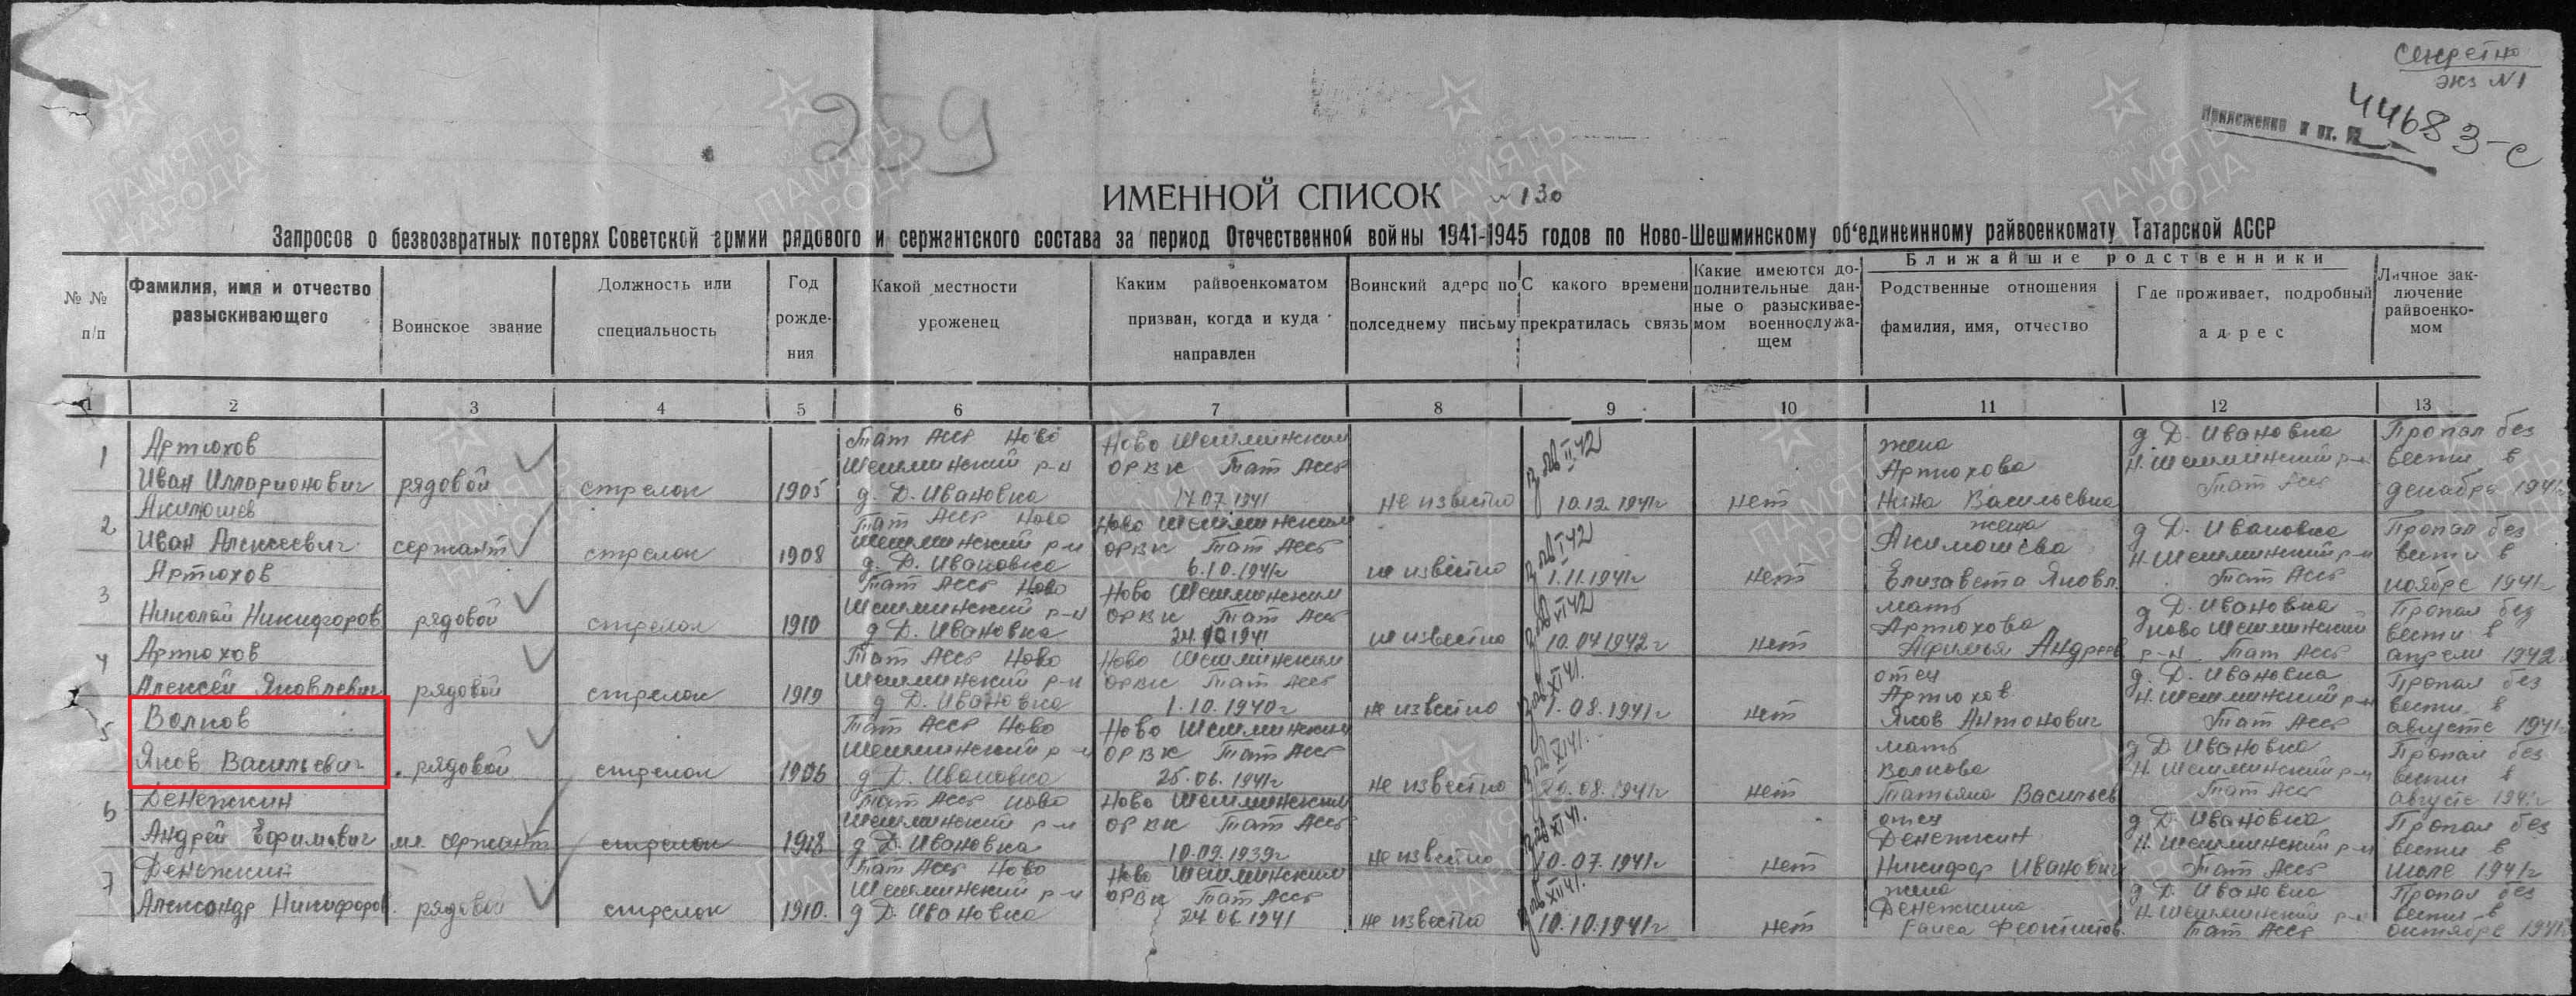 Секретно
экз №1
Приложение к вх. №
44683-с
259
ИМЕННОЙ СПИСОК №130
Запросов о безвозвратных потерях Советской армии рядового и сержантского состава за период Отечественной войны 1941-1945 годов по Ново-Шешминскому об'единенному райвоенкомату Татарской АССР
№ № п/п
Фамилия, имя и отчество разыскивающего
Воинское звание
Должность или специальность
Год рожде-ния
Какой местности уроженец
Каким райвоенкоматом призван, когда и куда направлен
Воинский адрес по полседнему письму
С какого времени прекратилась связь
Какие имеются до-полнительные дан-ные о разыскивае-мом военнослужа-щем
Ближайшие родственники
Родственные отношения фамилия, имя, отчество
Где проживает, подробный адрес
Личное зак-лючение райвоенко-мом
1 2 3 4 5 6 7 8 9 10 11 12 13
1 Артюхов Иван Илларионович рядовой стрелок 1905 Тат АССР Ново Шешминский р-н д. Д. Ивановка Ново Шешминским ОРВК Тат АССР 17.07.1941 не известно 10.12.1941г нет жена Артюхова Нина Васильевна д Д. Ивановка Н. Шешминский р-н Тат АССР Пропал без вести в декабре 1941г
2 Акимошев Иван Алексеевич сержант стрелок 1908 Тат АССР Ново Шешминский р-н д. Д. Ивановка Ново Шешминским ОРВК Тат АССР 6.10.1941г не известно 1.11.1941г нет жена Акимошева Елизавета Яковл. д Д. Ивановка Н-Шешминский р-н Тат АССР Пропал без вести в ноябре 1941г
3 Артюхов Николай Никифоров рядовой стрелок 1910 Тат АССР Ново Шешминский р-н д Д. Ивановка Ново Шешминским ОРВК Тат АССР 24.10.1941 не известно 10.04.1942г нет мать Артюхова Афимья Андреев д Д. Ивановка Ново Шешминский р-н Тат АССР Пропал без вести в апреле 1942г
4 Артюхов Алексей Яковлевич рядовой стрелок 1919 Тат АССР Ново Шешминский р-н д Д. Ивановка Ново Шешминским ОРВК Тат АССР 1.10.1940г не известно 1.08.1941г нет отец Артюхов Яков Антонович д. Д. Ивановка Н. Шешминский р-н Тат АССР Пропал без вести в августе 1941г
5 Волков Яков Васильевич рядовой стрелок 1906 Тат АССР Ново Шешминский р-н д Д. Ивановка Ново Шешминским ОРВК Тат АССР 25.06.1941г не известно 20.08.1941г нет мать Волкова Татьяна Васильев д Д Ивановка Н. Шешминский р-н Тат АССР Пропал без вести в августе 1941г
6 Денежкин Андрей Ефимович мл. сержант стрелок 1918 Тат АССР Ново Шешминский р-н д Д. Ивановка Ново Шешминским ОРВК Тат АССР 10.09.1939г не известно 10.07.1941г нет отец Денежкин Никифор Иванович д Д. Ивановка Н. Шешминский р-н Тат АССР Пропал без вести в июле 1941г
7 Денежкин Александр Никифоров. рядовой стрелок 1910. Тат АССР Ново Шешминский р-н д Д. Ивановка Ново Шешминским ОРВК Тат АССР 24.06.1941 не известно 10.10.1941г нет жена Денежкина Раиса Феоктистов. д Д. Ивановка Н. Шешминский р-н Тат АССР Пропал без вести в октябре 1941г
ПАМЯТЬ НАРОДА